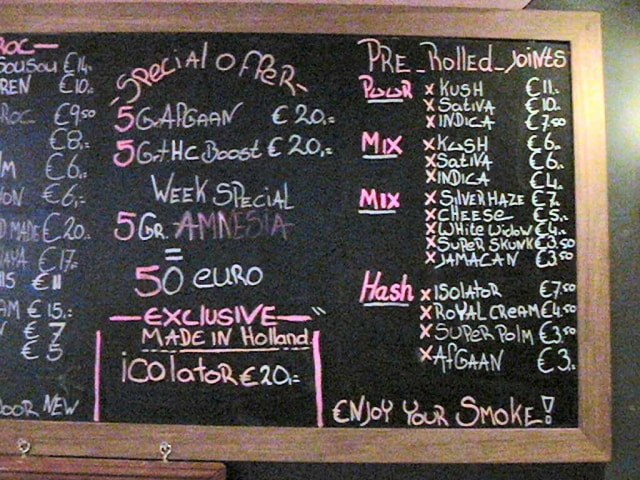 ROC
SOUSOU €14.
REN €10.
ROC €9.50
€8.
M €6.
ON €6.
D MADE €20.
€17.
€11
AM €15.
€7
€5
DOOR NEW
SPECIAL OFFER
5 Gr. AFGAAN €20,=
5 Gr. THC Boost €20,=
WEEK SPECIAL
5 GR. AMNESIA
=
50 euro
EXCLUSIVE
MADE IN Holland
icolator €20,=
PRE_Rolled_Joints
Puur x KUSH €11.
x Sativa €10.
x INDICA €7.50
MIX x KUSH €6.
x Sativa €6.
x INDICA €4.
MIX x SILVER HAZE €7.
x CHEESE €5.
x White Widow €4.
x SUPER SKUNK €3.50
x JAMACAN €3.50
Hash x ISOlator €7.50
x ROYAL CREAM €4.50
x SUPER Polm €3.50
x AFGAAN €3.
ENJOY YOUR SMOKE!